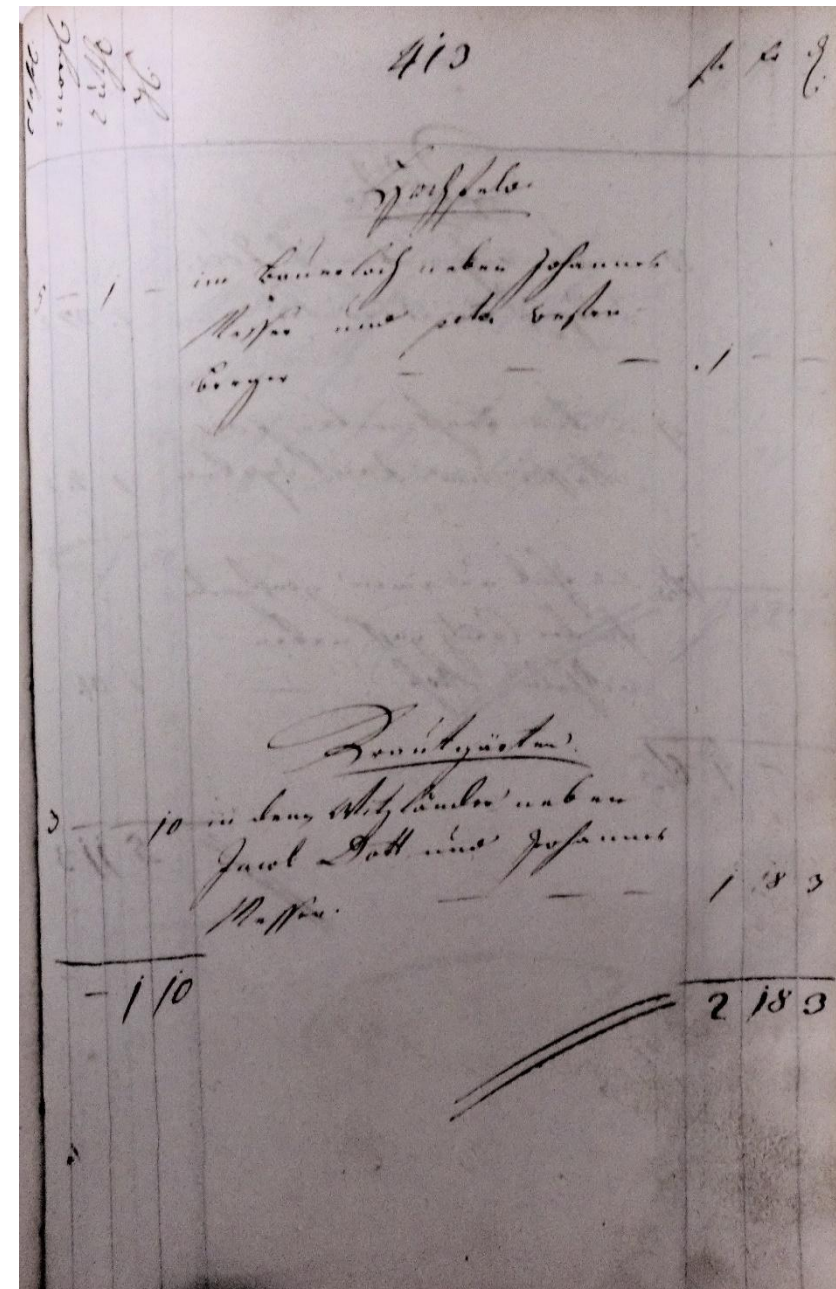 413
fl. kr. d.
Hochfeld.
5 1 - im Bauerloch neben Johannes
Messer und Peter Westen
berger — — — 1 - -
Krautgärten.
3 10 in denen Witzländer neben
Jacob Dott und Johannes
Messer. — — — 1 18 3
- 1 10 2 18 3